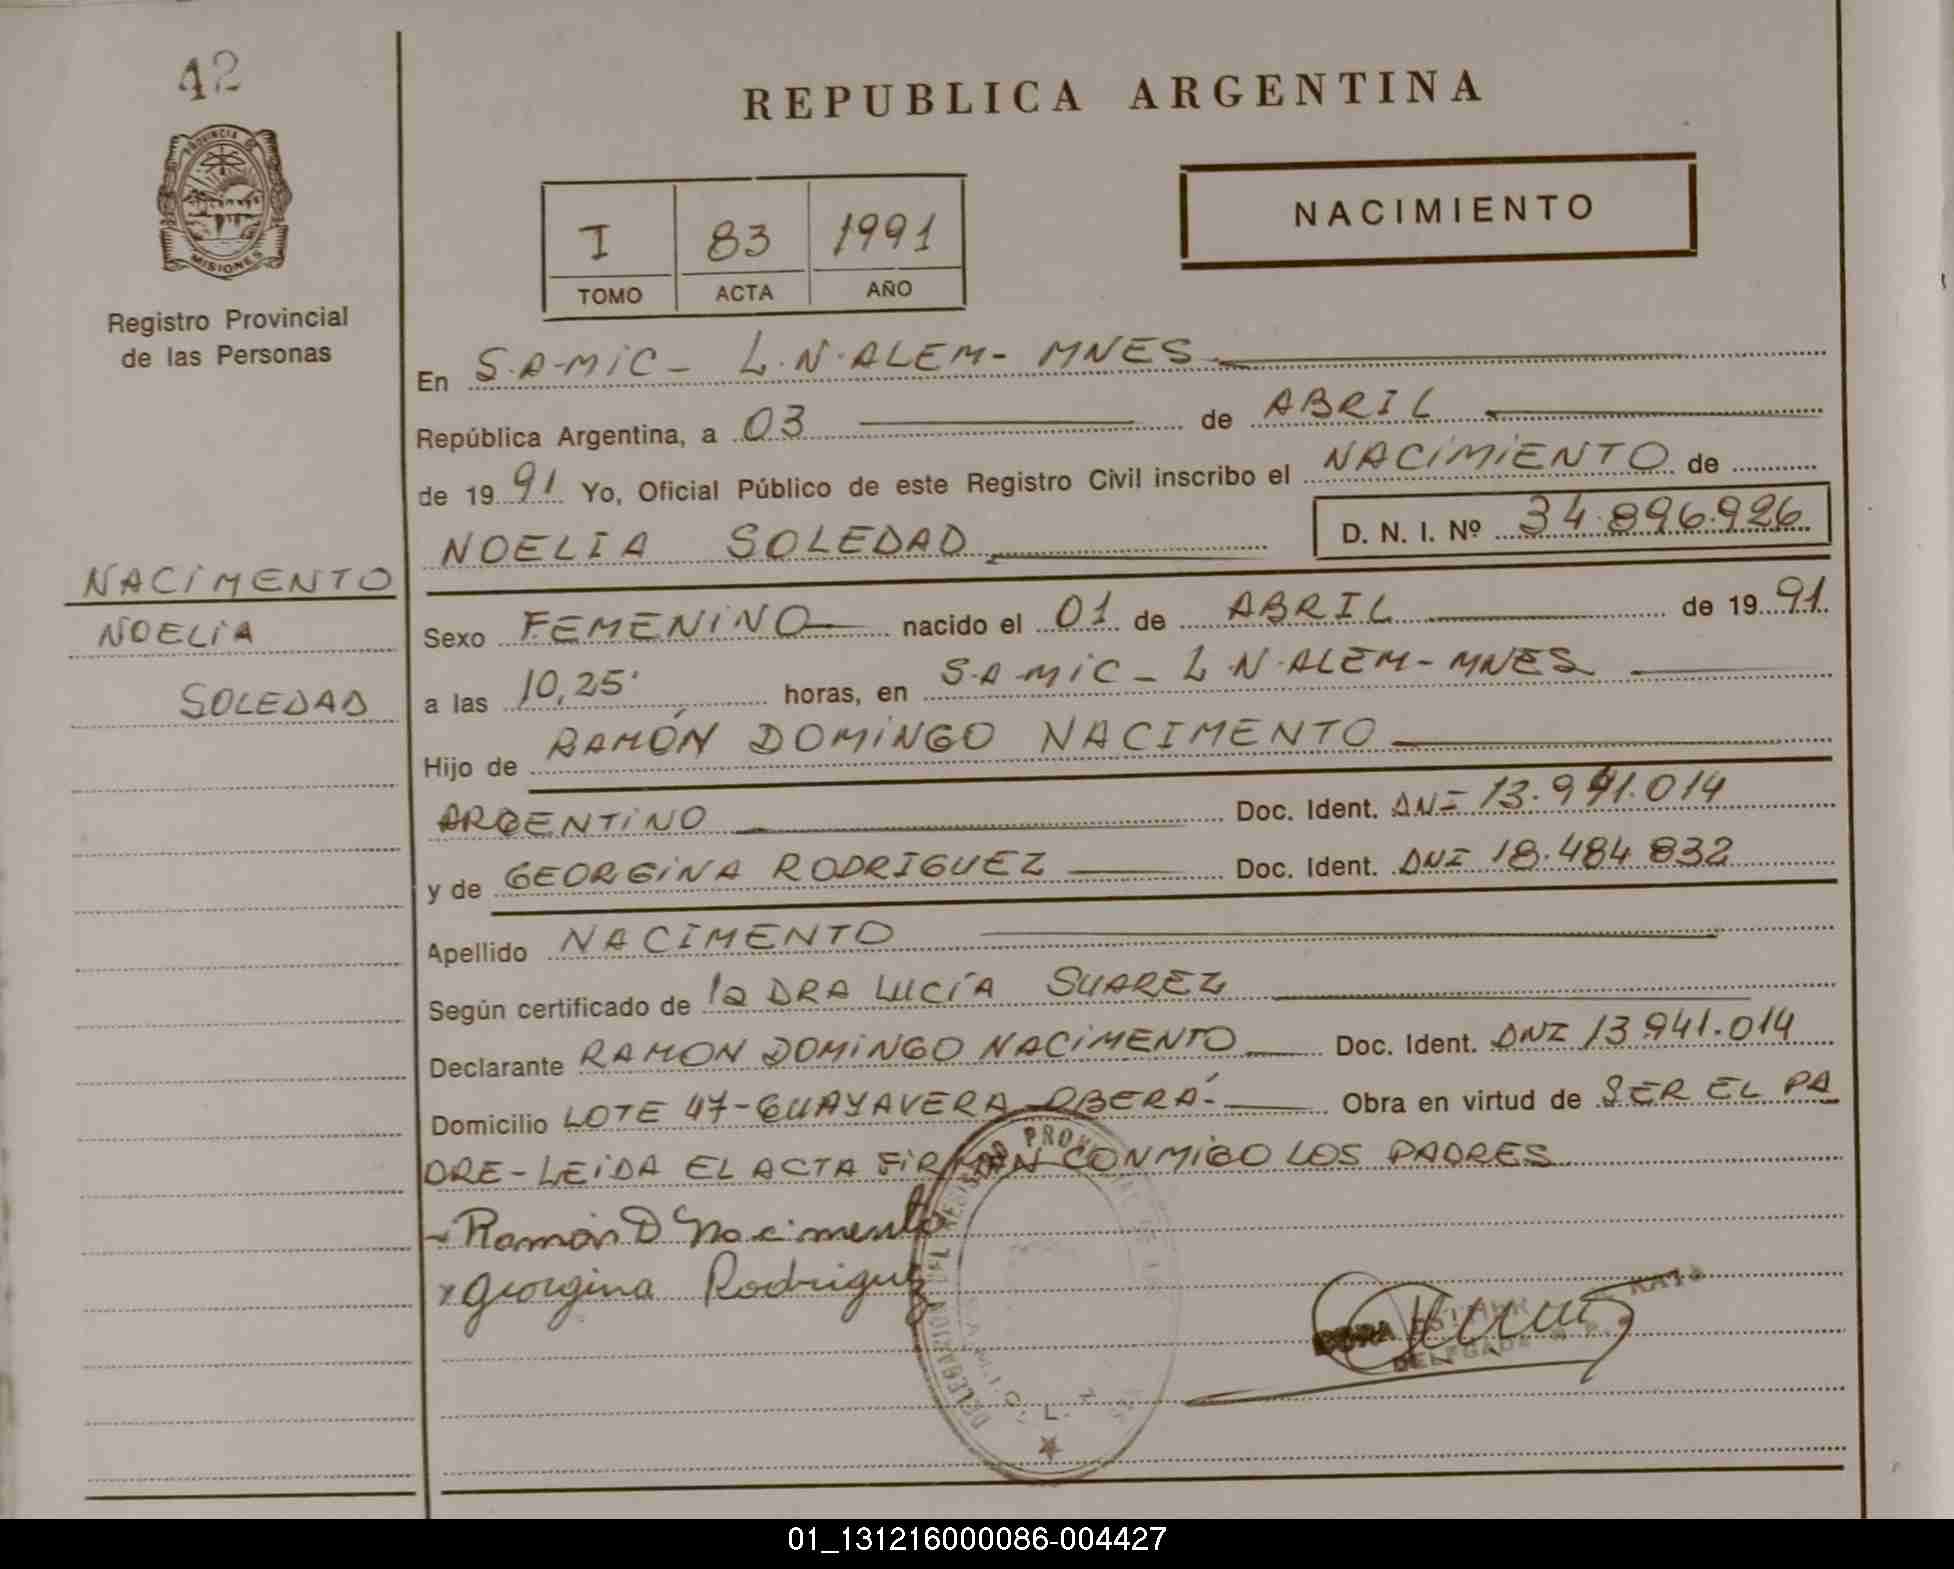 42
REPUBLICA ARGENTINA
PROVINCIA DE
MISIONES
Registro Provincial
de las Personas
NACIMIENTO
I 83 1991
TOMO ACTA AÑO
En S.A-MIC- L.N.ALEM- MNES
República Argentina, a 03 de ABRIL
de 1991 Yo, Oficial Público de este Registro Civil inscribo el NACIMIENTO de
NOELIA SOLEDAD D. N. I. Nº 34.896.926
NACIMENTO
NOELIA
SOLEDAD
Sexo FEMENINO nacido el 01 de ABRIL de 1991.
a las 10,25' horas, en S.A-MIC- L.N.ALEM-MNES
Hijo de RAMÓN DOMINGO NACIMENTO
ARGENTINO Doc. Ident. DNI 13.941.014
y de GEORGINA RODRIGUEZ Doc. Ident. DNI 18.484.832
Apellido NACIMENTO
Según certificado de la DRA LUCÍA SUAREZ
Declarante RAMON DOMINGO NACIMENTO Doc. Ident. DNI 13.941.014
Domicilio LOTE 47-GUAYAVERA OBERÁ- Obra en virtud de SER EL PA
DRE-LEIDA EL ACTA FIRMAN CONMIGO LOS PADRES
- Ramón D Nacimento
x Georgina Rodriguez
01_131216000086-004427